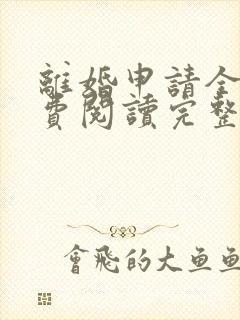 離婚申請全
費閱讀完整
會飛的大鱼鱼